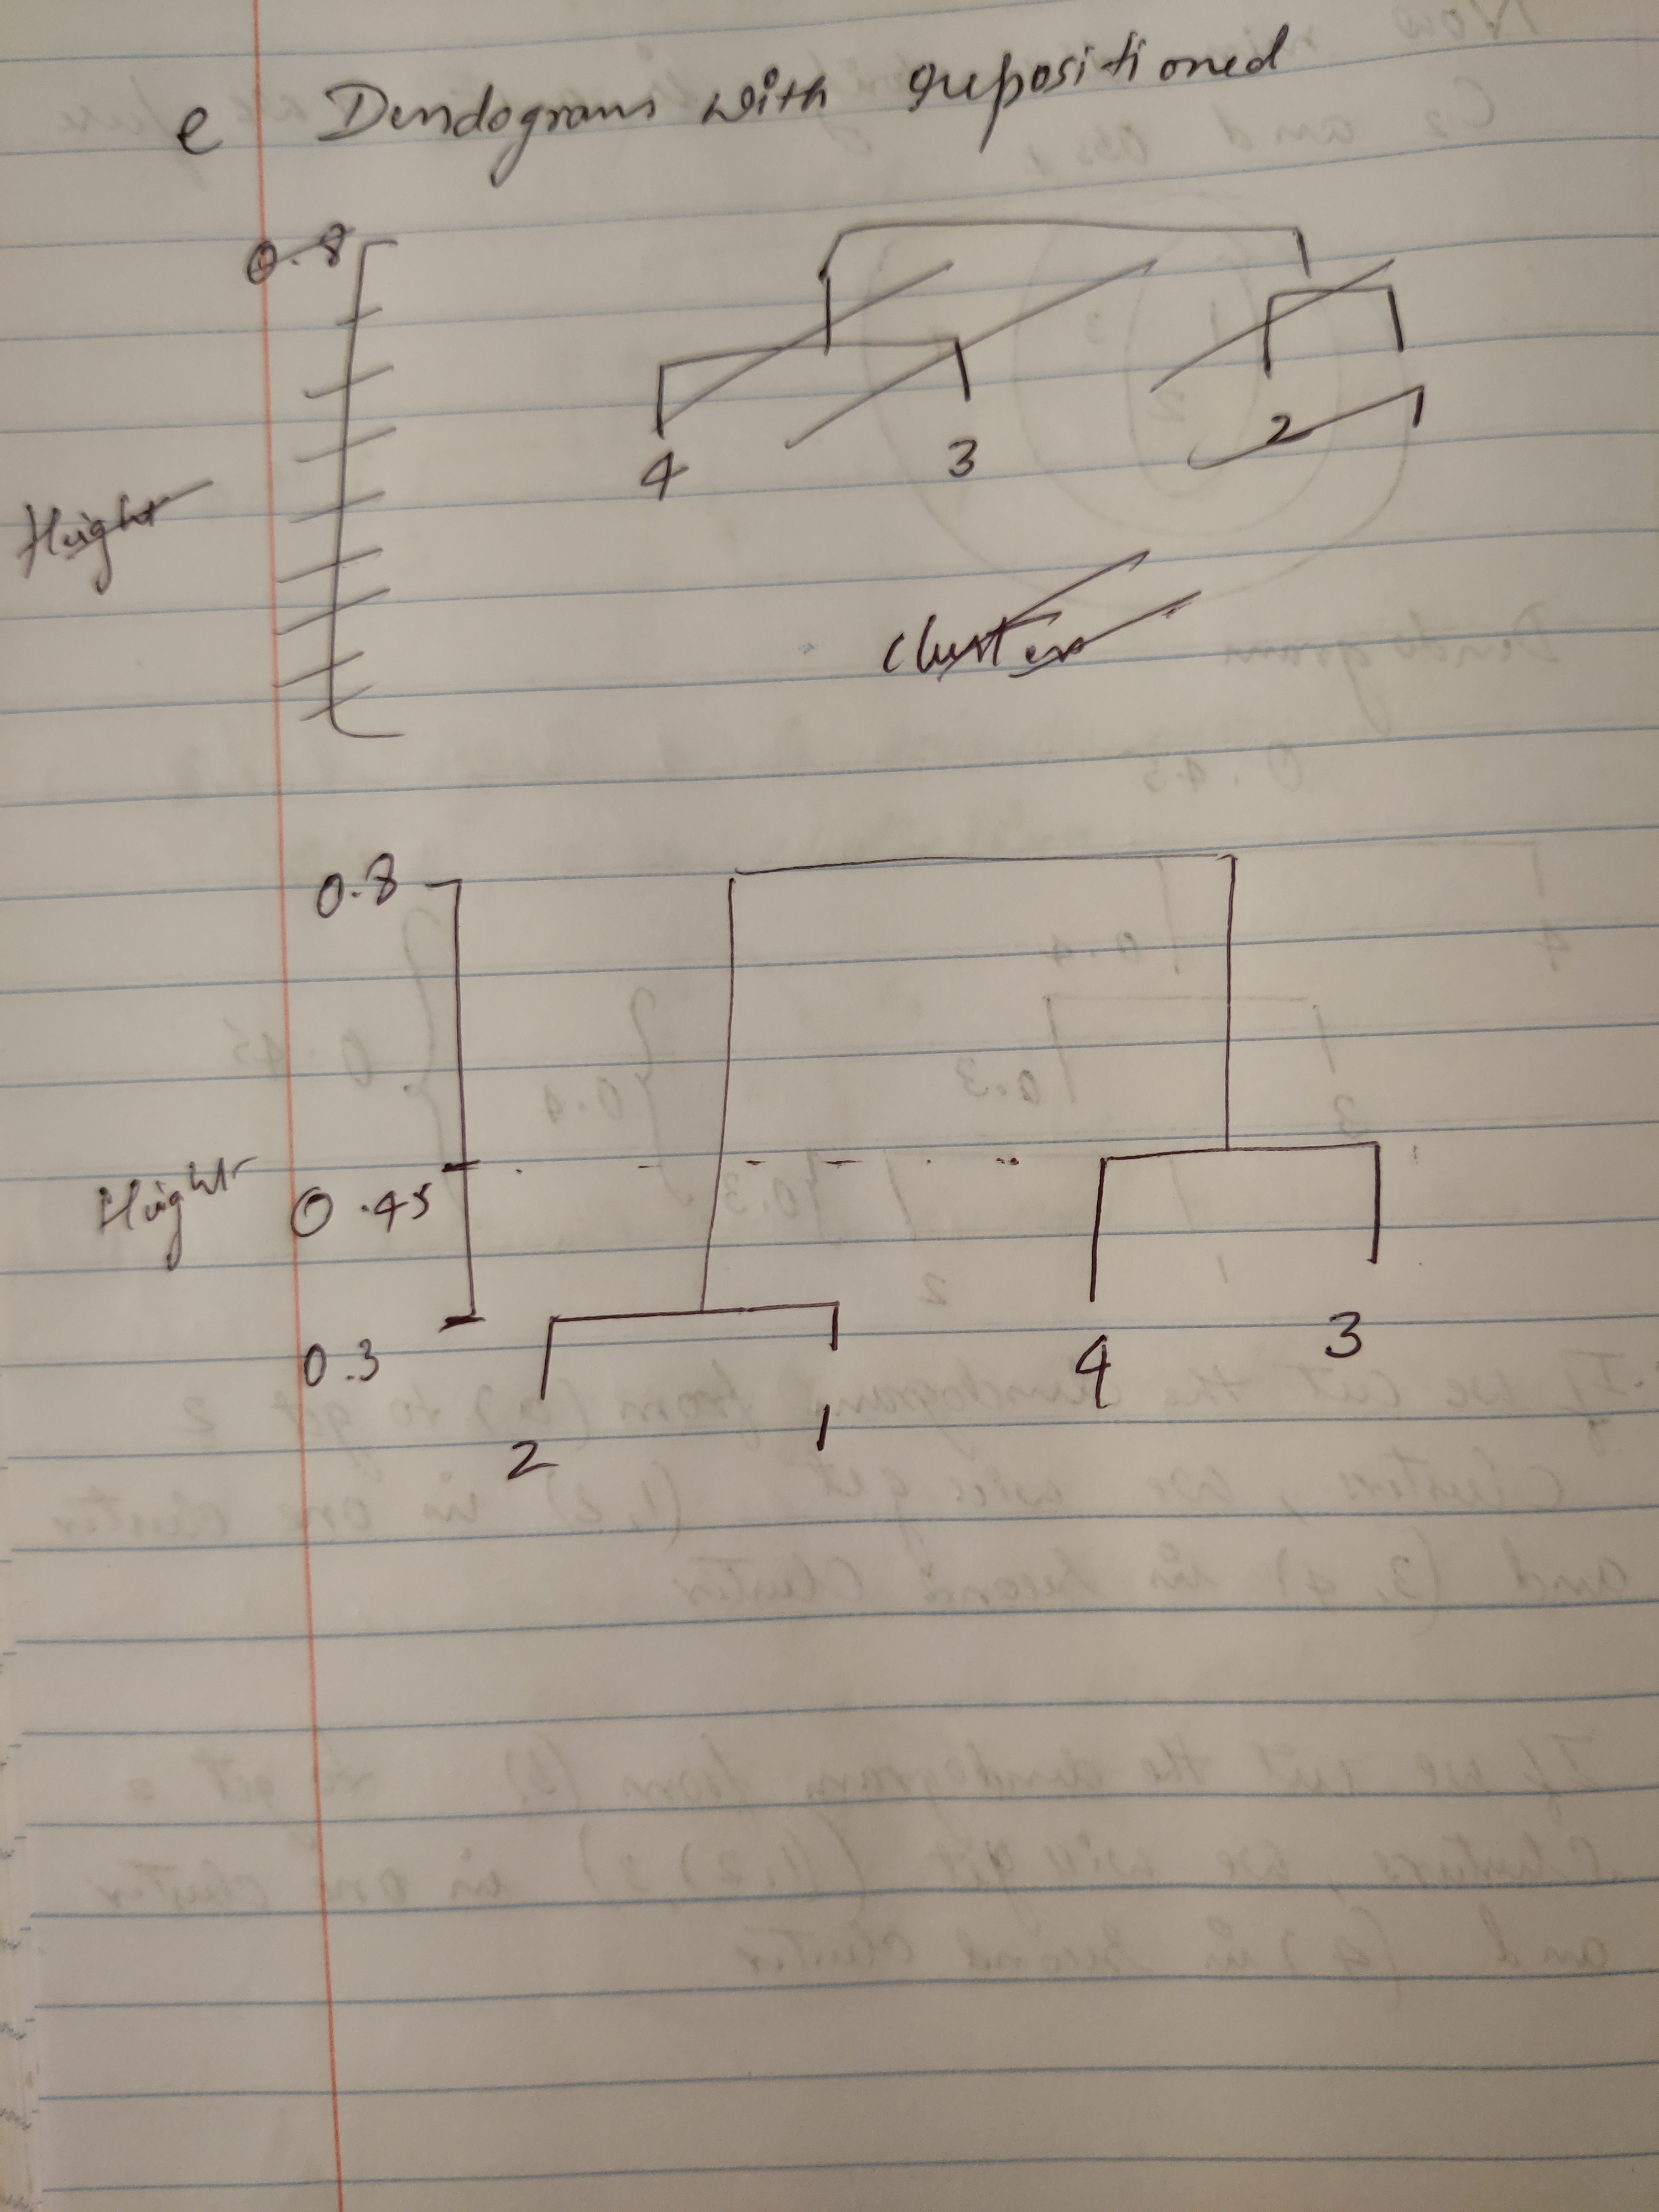 e Dendogram with repositioned
0.8
4 3 2
Height
cluster
0.8
Height 0.45
0.3
4 3
2 1